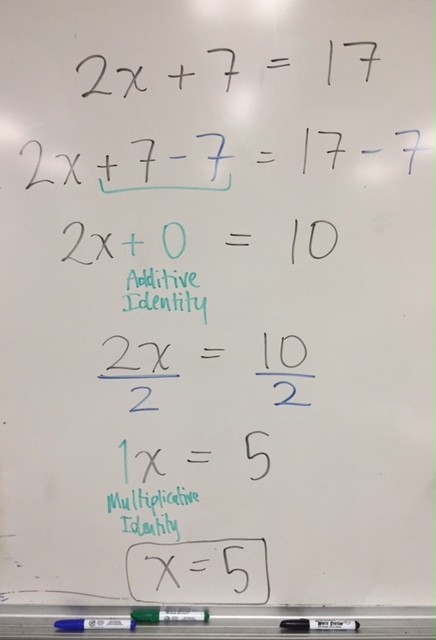 2x + 7 = 17
2x + 7 - 7 = 17 - 7
2x + 0 = 10
Additive
Identity
2x = 10
2 2
1x = 5
Multiplicative
Identity
x = 5